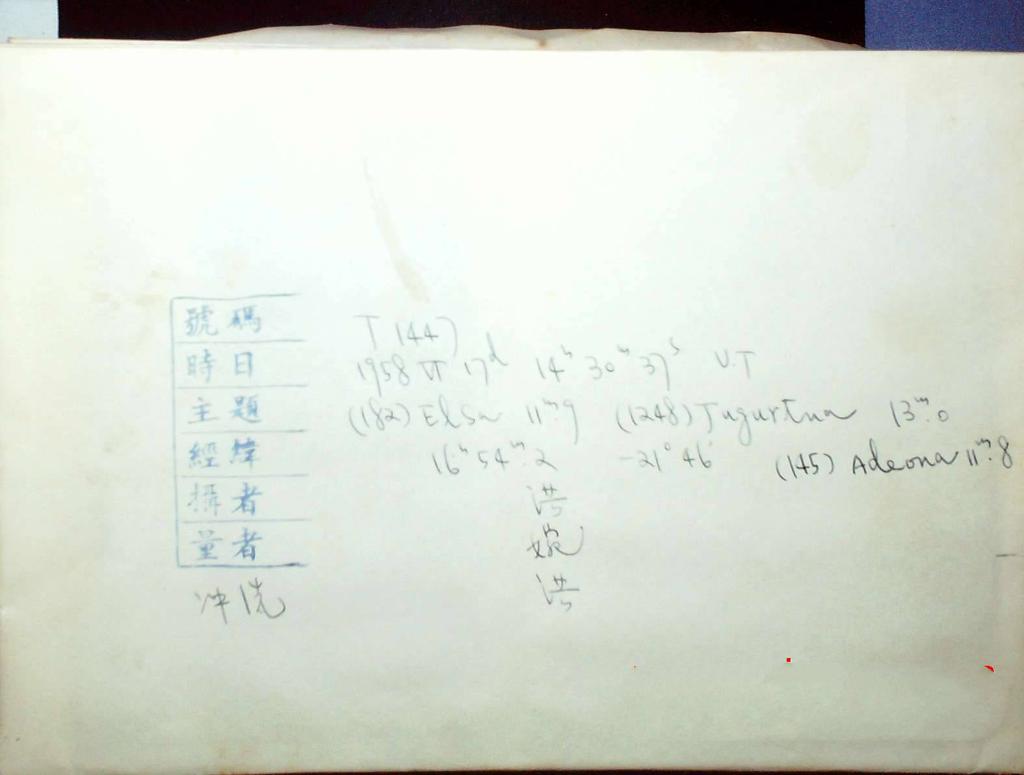 號碼 T 1447
時日 1958 VI 17d 14h 30m 37s U.T
主題 (182) Elsa 11m.9 (1248) Jugurtha 13m.0
經緯 16h 54m.2 -21° 46' (145) Adeona 11m.8
攝者 洪
量者 婉
沖洗 洪